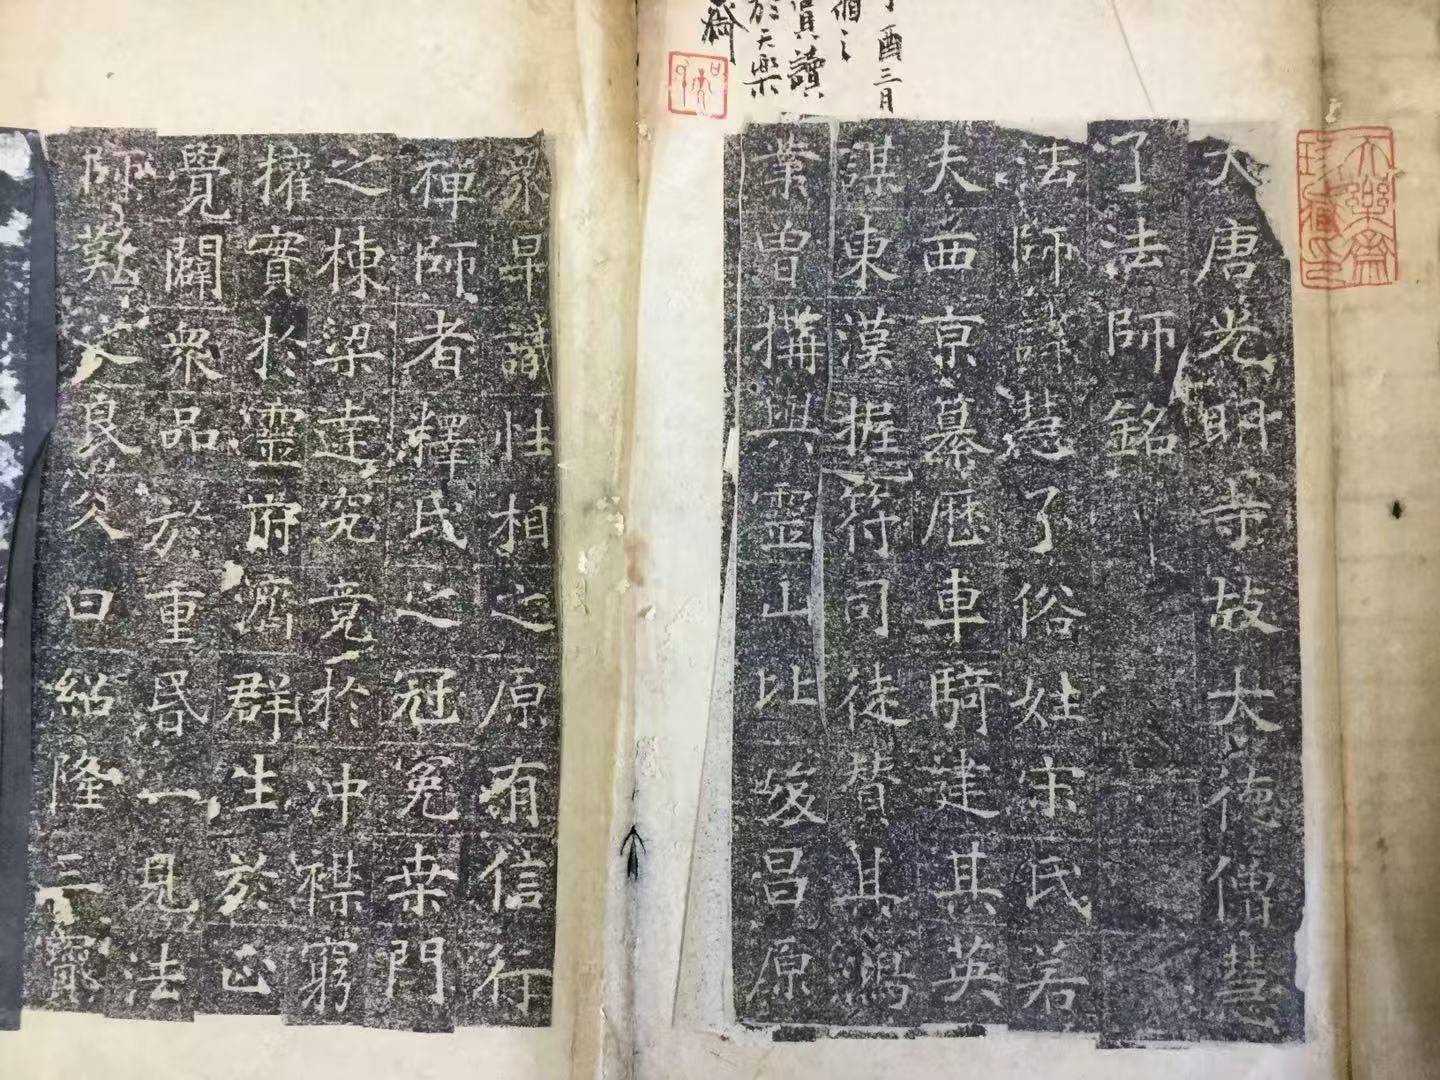 天樂齋
珍藏印
酉三月
讀
於天樂
齋
大唐光明寺故大德僧慧
了法師銘
法師諱慧了俗姓宋氏若
夫西京纂曆車騎建其英
謀東漢握符司徒贊其鴻
業曾搆與靈山比峻昌原
衆早識性相之原有信行
禪師者釋氏之冠冕桒門
之棟梁達究竟於沖襟窮
權實於靈府濟群生於正
覺闢衆品於重昏一見法
師歎良久曰紹隆三寶